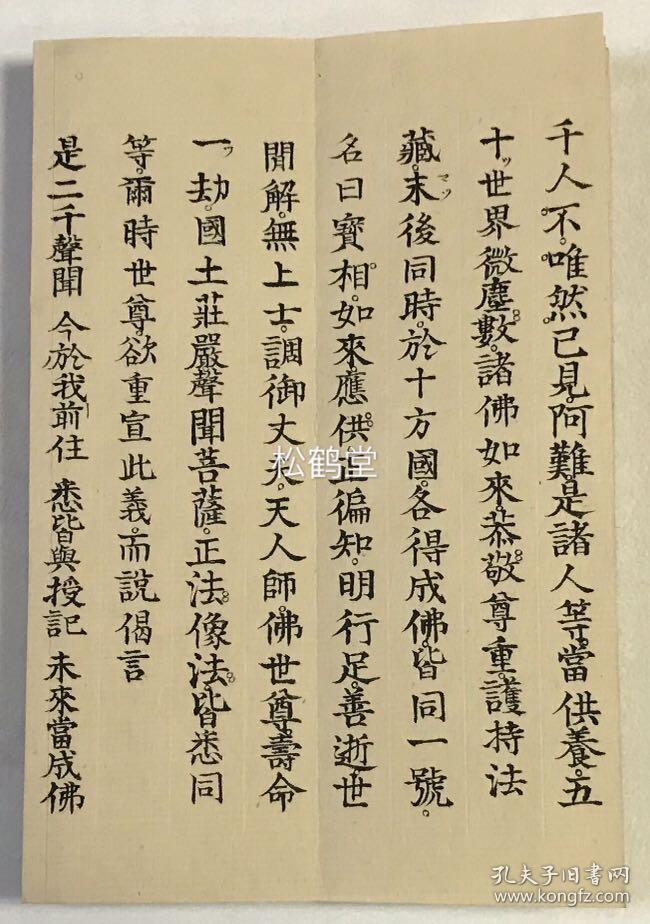 千人不唯然已見阿難是諸人等當供養五
十世界微塵數諸佛如來恭敬尊重護持法
藏末後同時於十方國各得成佛皆同一號
名曰寶相如來應供正徧知明行足善逝世
間解無上士調御丈夫天人師佛世尊壽命
一劫國土莊嚴聲聞菩薩正法像法皆悉同
等爾時世尊欲重宣此義而說偈言
是二千聲聞 今於我前住 悉皆與授記 未來當成佛
松鹤堂
孔夫子旧书网
www.kongfz.com